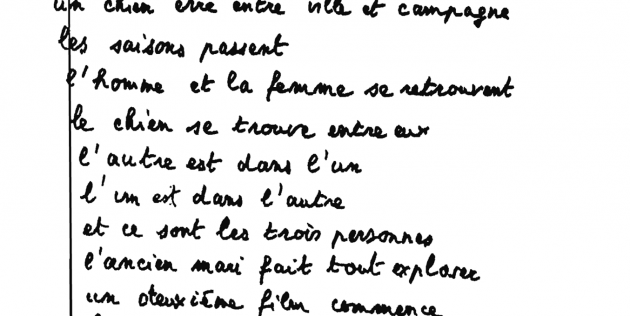 un chien erre entre ville et campagne
les saisons passent
l'homme et la femme se retrouvent
le chien se trouve entre eux
l'autre est dans l'un
l'un est dans l'autre
et ce sont les trois personnes
l'ancien mari fait tout exploser
un deuxième film commence